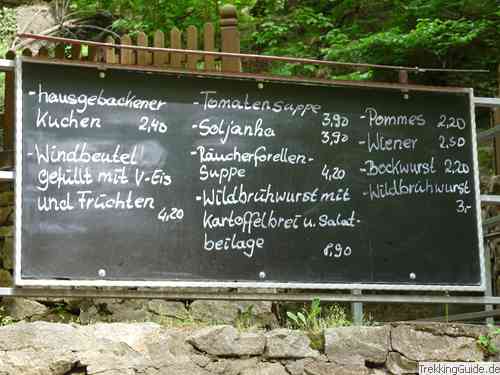 -hausgebackener
Kuchen 2,40
-Windbeutel
gefüllt mit V-Eis
und Früchten 4,20
-Tomatensuppe 3,90
-Soljanka 3,90
-Räucherforellen-
Suppe 4,20
-Wildbrühwurst mit
Kartoffelbrei u. Salat-
beilage 8,90
-Pommes 2,20
-Wiener 2,50
-Bockwurst 2,20
-Wildbrühwurst
3,-
TrekkingGuide.de